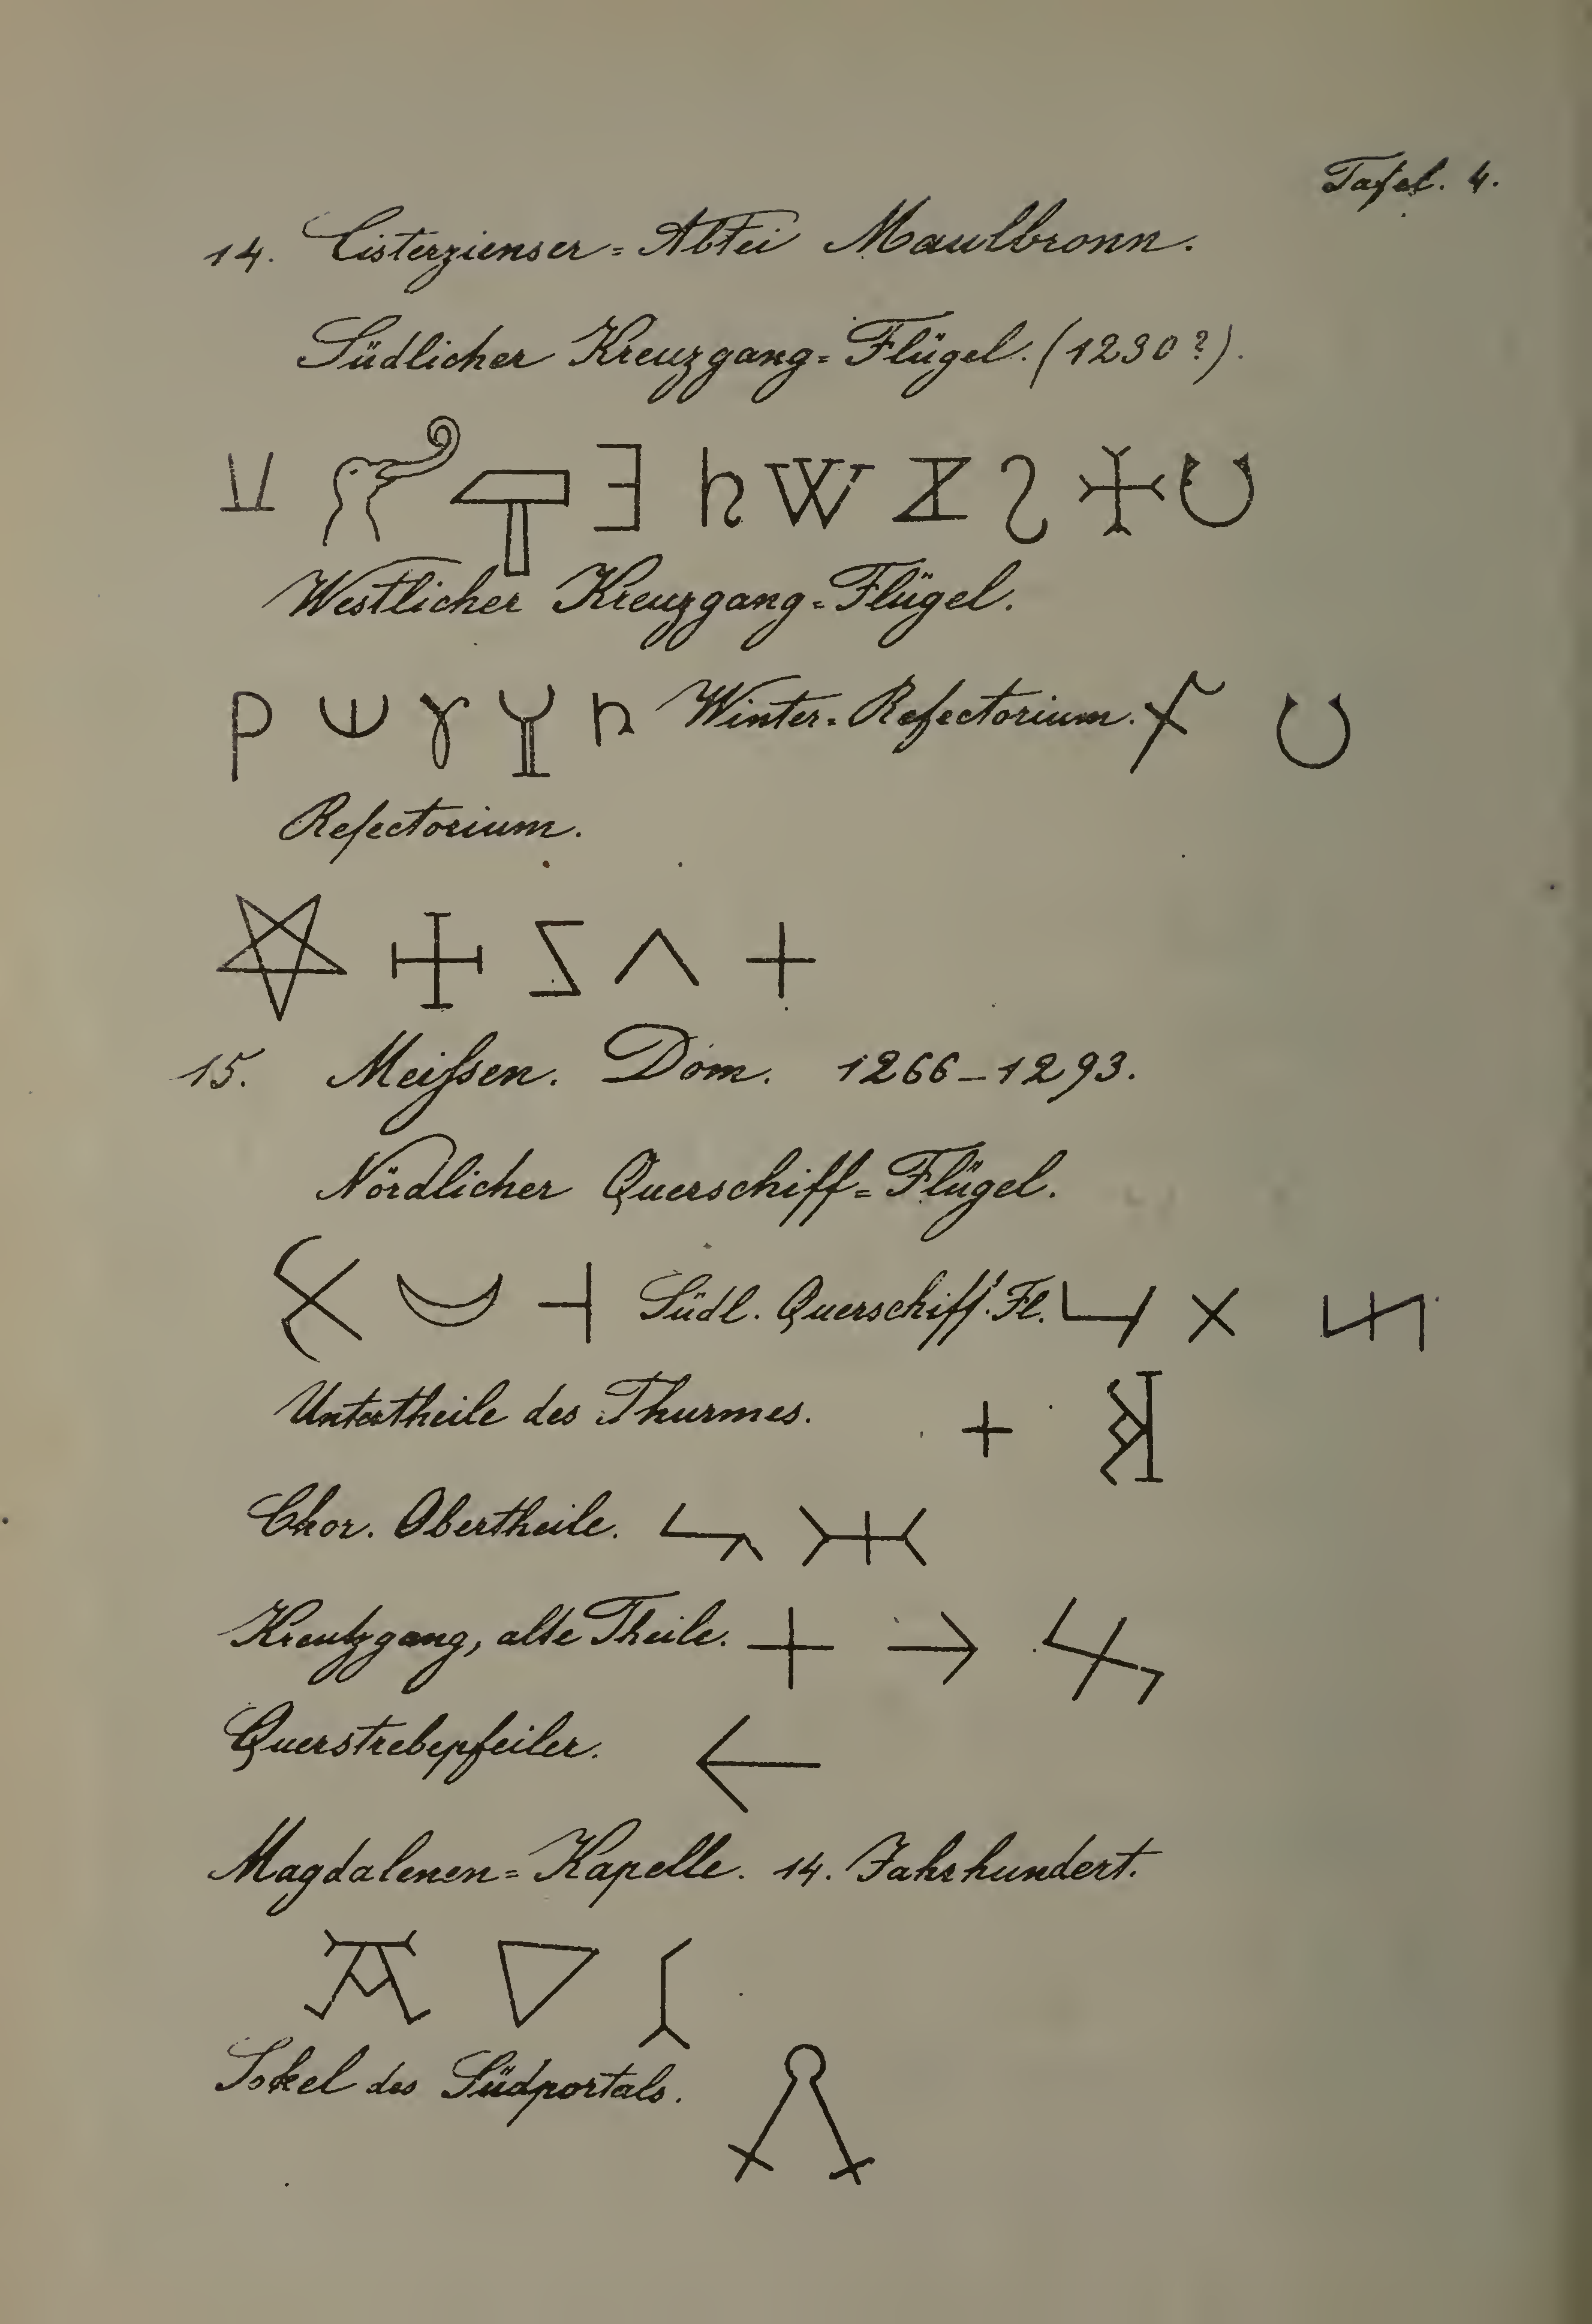 Tafel. 4.
14. Cisterzienser=Abtei Maulbronn.
Südlicher Kreuzgang=Flügel. (1230?).
Westlicher Kreuzgang=Flügel.
Winter=Refectorium.
Refectorium.
15. Meiſsen. Dom. 1266–1293.
Nördlicher Querschiff=Flügel.
Südl. Querschiff. Fl.
Untertheile des Thurmes.
Chor. Obertheile.
Kreutzgang, alte Theile.
Querstrebepfeiler.
Magdalenen=Kapelle. 14. Jahrhundert.
Sokel des Südportals.